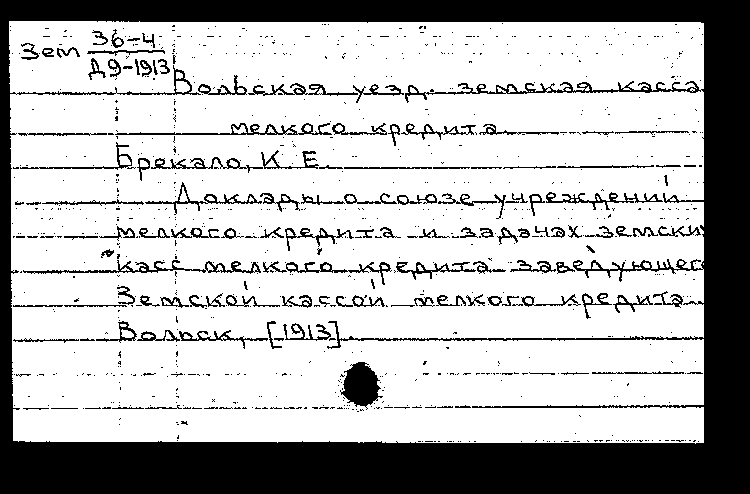 Зем 36-4
Д9-1913
Вольская уезд. земская касса
мелкого кредита.
Брекало, К. Е.
Доклады о союзе учреждений
мелкого кредита и задачах земских
касс мелкого кредита заведующего
Земской кассой мелкого кредита.
Вольск, [1913].